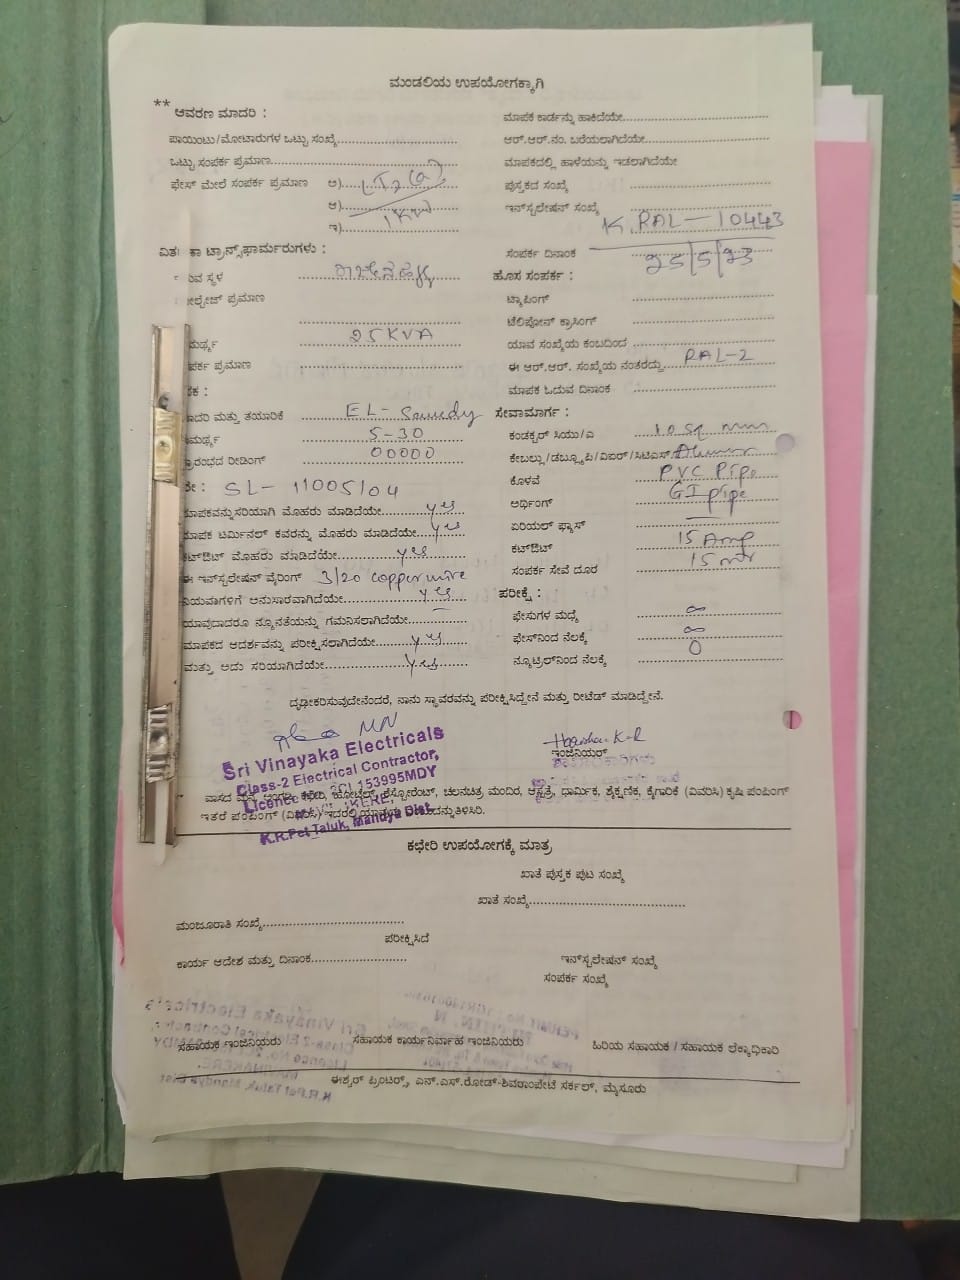 ಮಂಡಲಿಯ ಉಪಯೋಗಕ್ಕಾಗಿ
** ಆವರಣ ಮಾದರಿ :
ಪಾಯಿಂಟು/ಮೋಟಾರುಗಳ ಒಟ್ಟು ಸಂಖ್ಯೆ
ಒಟ್ಟು ಸಂಪರ್ಕ ಪ್ರಮಾಣ
ಫೇಸ್ ಮೇಲೆ ಸಂಪರ್ಕ ಪ್ರಮಾಣ ಅ)
ಆ)
ಇ) 1KW
ಮಾಪಕ ಕಾರ್ಡನ್ನು ಹಾಕಿದೆಯೇ
ಆರ್.ಆರ್.ನಂ. ಬರೆಯಲಾಗಿದೆಯೇ
ಮಾಪಕದಲ್ಲಿ ಹಾಳೆಯನ್ನು ಇಡಲಾಗಿದೆಯೇ
ಪುಸ್ತಕದ ಸಂಖ್ಯೆ
ಇನ್‌ಸ್ಟಲೇಷನ್ ಸಂಖ್ಯೆ K.RAL-10443
ಸಂಪರ್ಕ ದಿನಾಂಕ 25/5/23
ಟ್ರಾನ್ಸ್‌ಫಾರ್ಮರುಗಳು :
ಸ್ಥಳ
ಪ್ರಮಾಣ
25KVA
ಪ್ರಮಾಣ
ಮತ್ತು ತಯಾರಿಕೆ EL-
5-30
ರೀಡಿಂಗ್ 00000
SL- 11005104
ಮೊಹರು ಮಾಡಿದೆಯೇ yes
ಟರ್ಮಿನಲ್ ಕವರನ್ನು ಮೊಹರು ಮಾಡಿದೆಯೇ yes
ಕಟ್‌ಔಟ್ ಮೊಹರು ಮಾಡಿದೆಯೇ yes
ಈ ಇನ್‌ಸ್ಟಲೇಷನ್ ವೈರಿಂಗ್ 3/20 copper wire
ನಿಯಮಗಳಿಗೆ ಅನುಸಾರವಾಗಿದೆಯೇ yes
ಯಾವುದಾದರೂ ನ್ಯೂನತೆಯನ್ನು ಗಮನಿಸಲಾಗಿದೆಯೇ
ಮಾಪಕದ ಆದರ್ಶವನ್ನು ಪರೀಕ್ಷಿಸಲಾಗಿದೆಯೇ yes
ಮತ್ತು ಅದು ಸರಿಯಾಗಿದೆಯೇ yes
ಹೊಸ ಸಂಪರ್ಕ :
ಟ್ಯಾಪಿಂಗ್
ಟೆಲಿಫೋನ್ ಕ್ರಾಸಿಂಗ್
ಯಾವ ಸಂಖ್ಯೆಯ ಕಂಬದಿಂದ
ಈ ಆರ್.ಆರ್. ಸಂಖ್ಯೆಯ ನಂತರದ್ದು RAL-2
ಮಾಪಕ ಓದುವ ದಿನಾಂಕ
ಸೇವಾಮಾರ್ಗ :
ಕಂಡಕ್ಟರ್ ಸಿಯು/ಎ 10 Sq mm
ಕೇಬಲ್ಲು/ಡಬ್ಲ್ಯೂಪಿ/ವಿಐಆರ್/ಸಿಟಿಎಸ್
ಕೊಳವೆ PVC Pipe
ಅರ್ಥಿಂಗ್ GI pipe
ಏರಿಯಲ್ ಫ್ಯೂಸ್
ಕಟ್‌ಔಟ್ 15 Amp
ಸಂಪರ್ಕ ಸೇವೆ ದೂರ 15 mtr
ಪರೀಕ್ಷೆ :
ಫೇಸುಗಳ ಮಧ್ಯೆ ∞
ಫೇಸ್‌ನಿಂದ ನೆಲಕ್ಕೆ ∞
ನ್ಯೂಟ್ರಲ್‌ನಿಂದ ನೆಲಕ್ಕೆ 0
ದೃಢೀಕರಿಸುವುದೇನೆಂದರೆ, ನಾನು ಸ್ಥಾವರವನ್ನು ಪರೀಕ್ಷಿಸಿದ್ದೇನೆ ಮತ್ತು ರೀಟೆಡ್ ಮಾಡಿದ್ದೇನೆ.
Sri Vinayaka Electricals
Class-2 Electrical Contractor,
Licence 153995MDY
K.R.Pet Taluk, Mandya Dist.
K.R
ಇಂಜಿನಿಯರ್
ವಾಸದ ಮನೆ, ಅಂಗಡಿ, ಕಛೇರಿ, ಹೋಟೆಲ್, ರೆಸ್ಟೋರೆಂಟ್, ಚಲನಚಿತ್ರ ಮಂದಿರ, ಆಸ್ಪತ್ರೆ, ಧಾರ್ಮಿಕ, ಶೈಕ್ಷಣಿಕ, ಕೈಗಾರಿಕೆ (ವಿವರಿಸಿ) ಕೃಷಿ ಪಂಪಿಂಗ್
ಇತರೆ ಪಂಪಿಂಗ್ (ವಿವರಿಸಿ)
ಕಛೇರಿ ಉಪಯೋಗಕ್ಕೆ ಮಾತ್ರ
ಖಾತೆ ಪುಸ್ತಕ ಪುಟ ಸಂಖ್ಯೆ
ಖಾತೆ ಸಂಖ್ಯೆ
ಮಂಜೂರಾತಿ ಸಂಖ್ಯೆ
ಪರೀಕ್ಷಿಸಿದೆ
ಕಾರ್ಯ ಆದೇಶ ಮತ್ತು ದಿನಾಂಕ
ಇನ್‌ಸ್ಟಲೇಷನ್ ಸಂಖ್ಯೆ
ಸಂಪರ್ಕ ಸಂಖ್ಯೆ
ಸಹಾಯಕ ಇಂಜಿನಿಯರು ಸಹಾಯಕ ಕಾರ್ಯನಿರ್ವಾಹ ಇಂಜಿನಿಯರು ಹಿರಿಯ ಸಹಾಯಕ / ಸಹಾಯಕ ಲೆಕ್ಕಾಧಿಕಾರಿ
ಈಶ್ವರ್ ಪ್ರಿಂಟರ್ಸ್, ಎನ್.ಎಸ್.ರೋಡ್-ಶಿವರಾಂಪೇಟೆ ಸರ್ಕಲ್, ಮೈಸೂರು